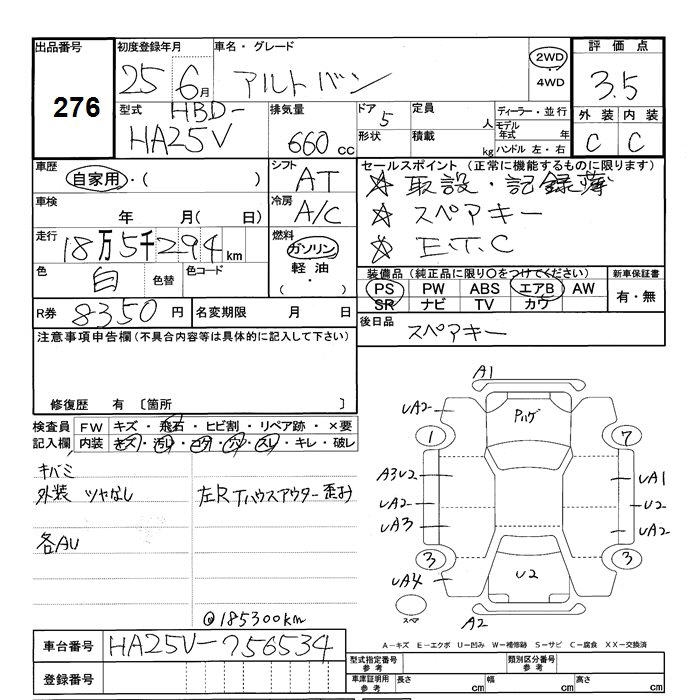 出品番号 初度登録年月 車名・グレード 評価点
276 25 6月 アルトバン 2WD 4WD 3.5
型式 HBD- 排気量 ドア 5 定員 人 ディーラー・並行 外装 内装
HA25V 660 cc 形状 積載 kg モデル年式 年 C C
ハンドル 左・右
車歴 シフト セールスポイント (正常に機能するものに限ります)
自家用・( ) AT ☆ 取設・記録簿
車検 冷房 ☆ スペアキー
年 月( 日) A/C ☆ E.T.C
走行 18万5千294km 燃料 ガソリン
色 白 色替 色コード 軽油
( ・ )
装備品(純正品に限り○をつけてください) 新車保証書
PS PW ABS エアB AW 有・無
SR ナビ TV カワ
R券 8350円 名変期限 月 日 後日品 スペアキー
注意事項申告欄(不具合内容等は具体的に記入して下さい)
修復歴 有 〔箇所 〕
検査員 FW キズ・飛石・ヒビ割・リペア跡・×要
記入欄 内装 キズ・汚レ・コゲ・穴・スレ・キレ・破レ
キバミ
外装 ツヤなし 左RTハウスアウター歪み
各AU
@185300km
A1
UA2 Pハゲ
1 7
A3U2 UA1
UA2 U2
UA3 UA2
3 3
UA4 U2
スペア A2
A-キズ E-エクボ U-凹み W-補修跡 S-サビ C-腐食 XX-交換済
車台番号 HA25V-756534
登録番号
型式指定番号 参考 類別区分番号 参考
車庫証明用 参考 長さ cm 幅 cm 高さ cm